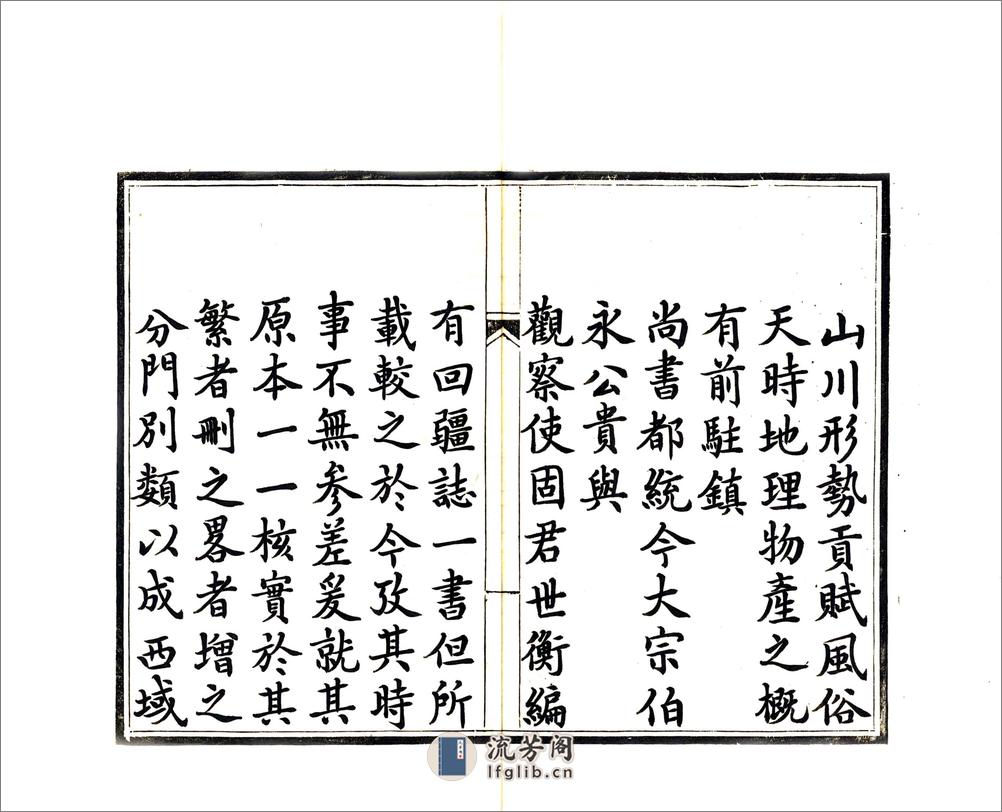 山川形勢貢賦風俗
天時地理物產之概
有前駐鎮
尚書都統今大宗伯
永公貴與
觀察使固君世衡編
有回疆誌一書但所
載較之於今攷其時
事不無參差爰就其
原本一一核實於其
繁者刪之畧者增之
分門別類以成西域
流芳阁
lfglib.cn